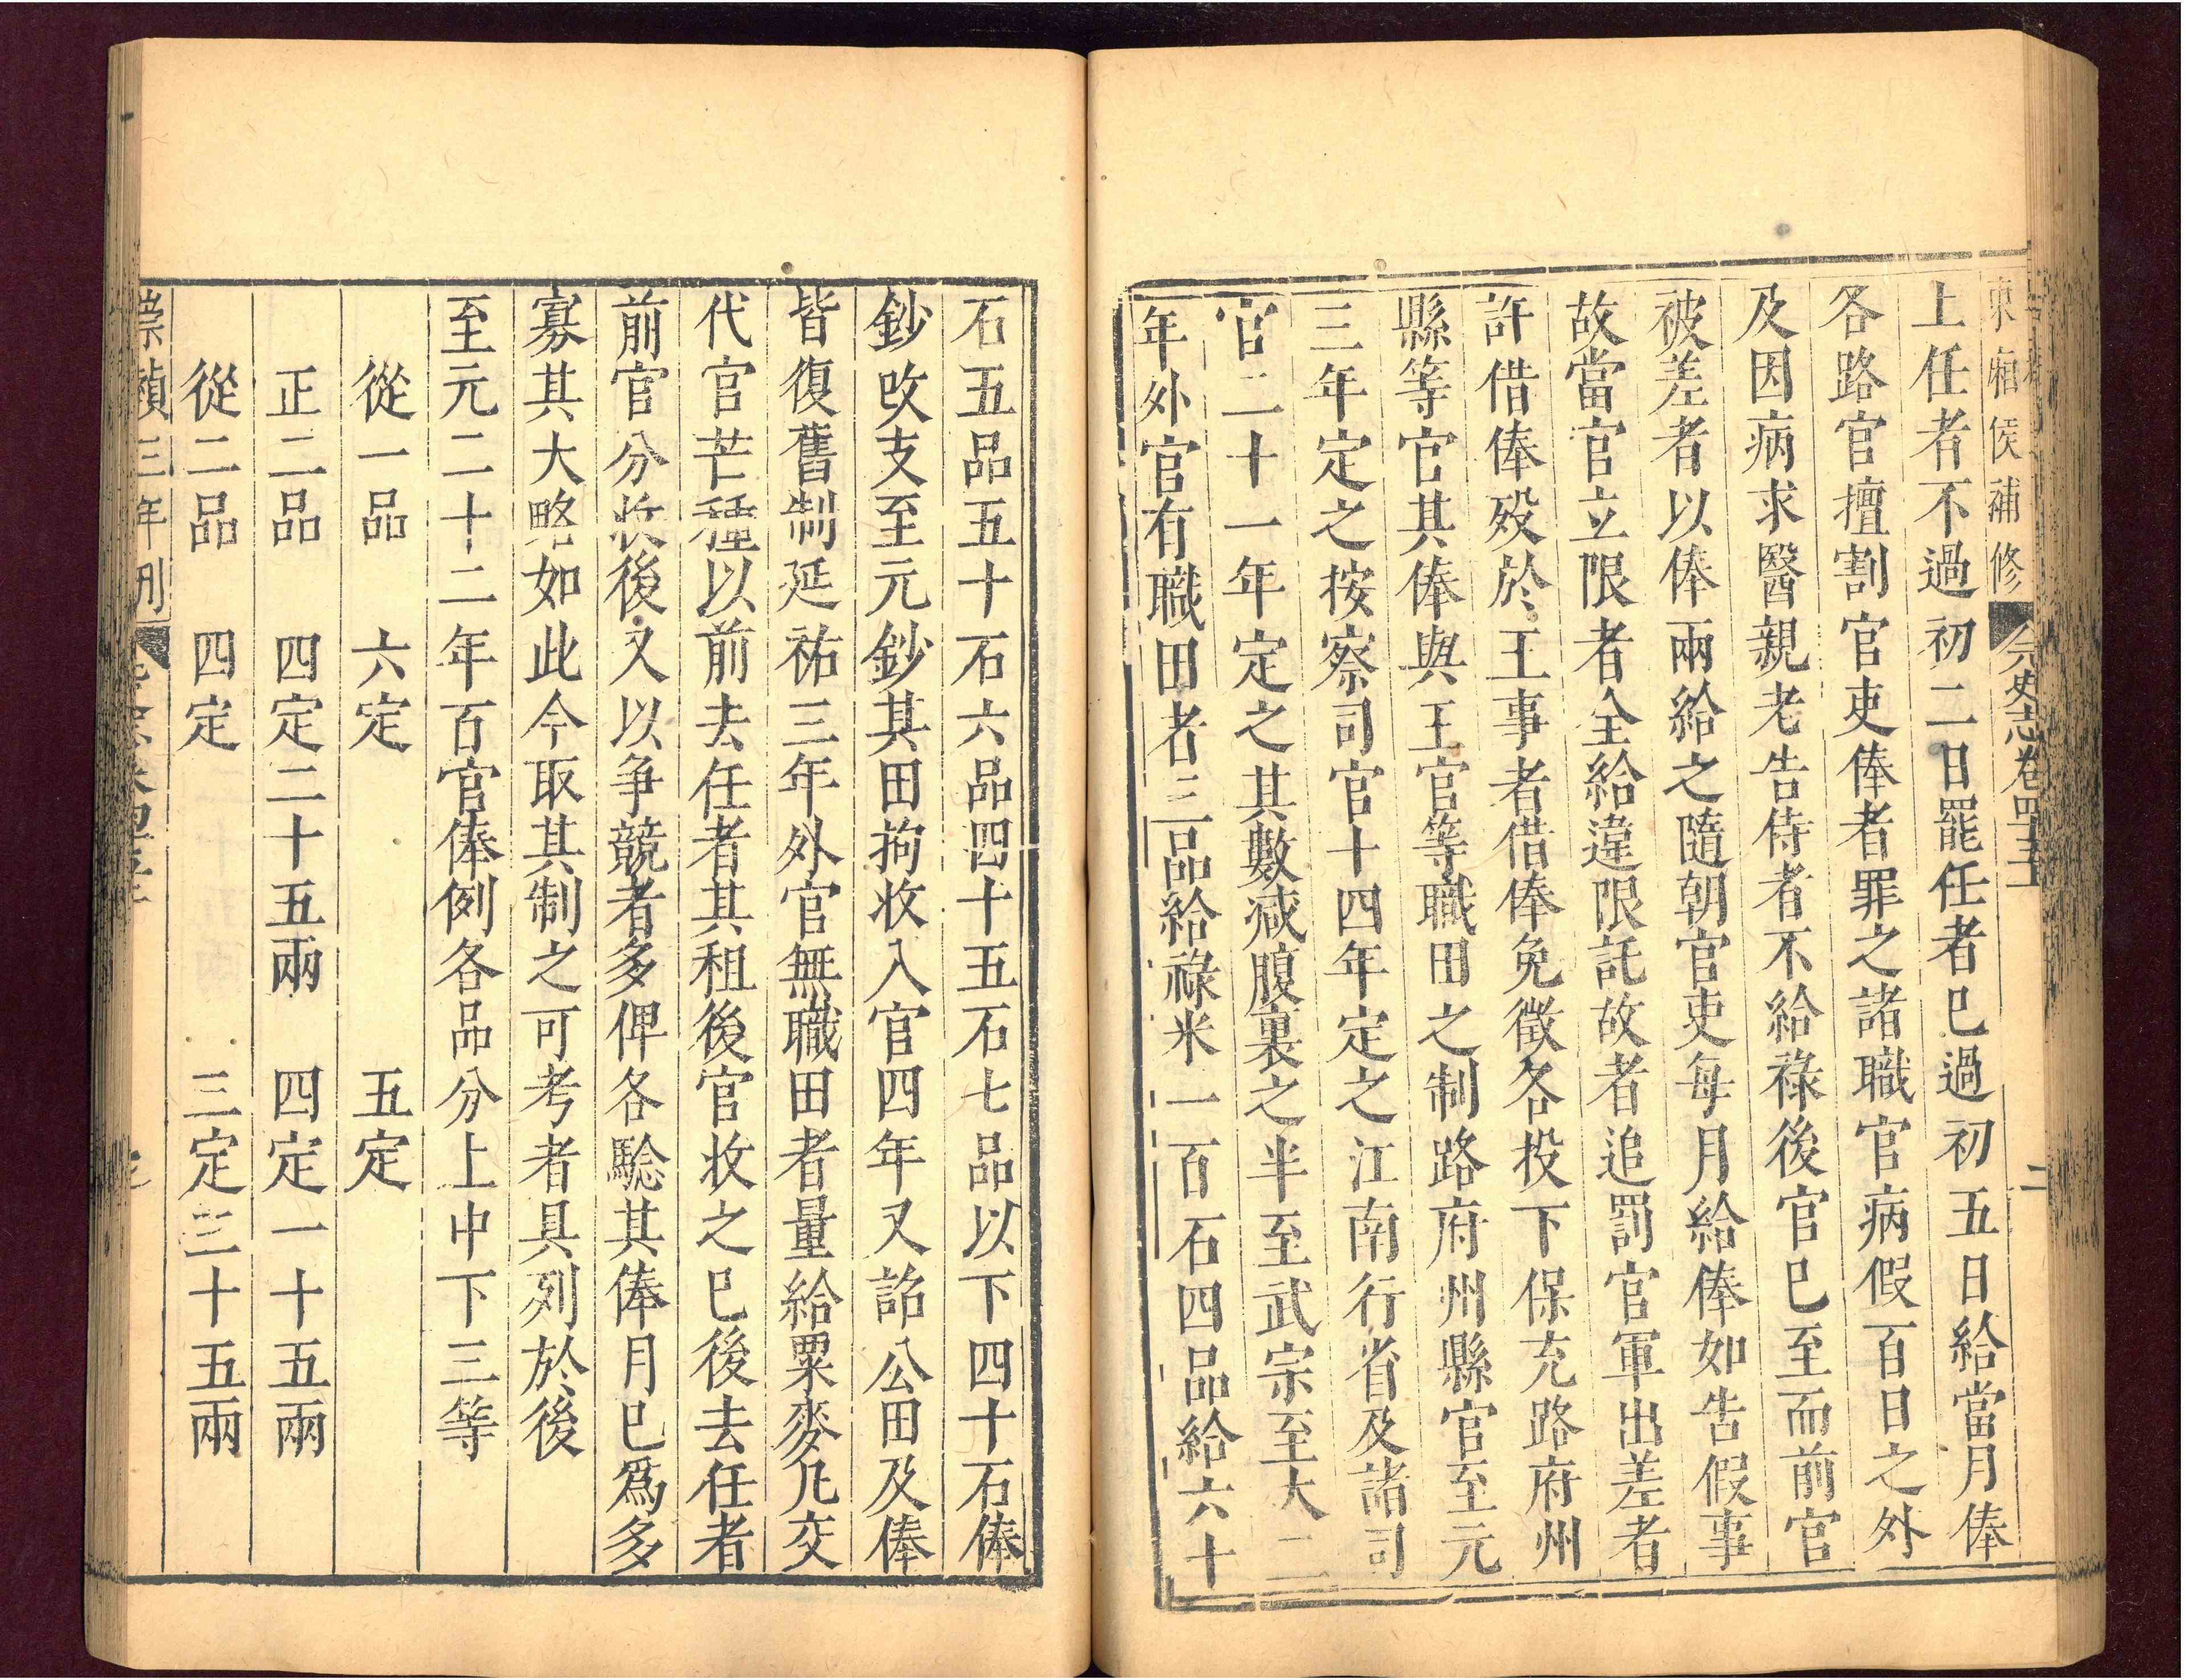 東廂侯補修
史志卷四十五
二
上任者不過初二日罷任者已過初五日給當月俸
各路官擅割官吏俸者罪之諸職官病假百日之外
及因病求醫親老告侍者不給祿後官已至而前官
被差者以俸兩給之隨朝官吏每月給俸如告假事
故當官立限者全給違限託故者追罰官軍出差者
許借俸歿於王事者借俸免徵各投下保充路府州
縣等官其俸與王官等職田之制路府州縣官至元
三年定之按察司官十四年定之江南行省及諸司
官二十一年定之其數减腹裏之半至武宗至大二
年外官有職田者三品給祿米一百石四品給六十
石五品五十石六品四十五石七品以下四十石俸
鈔改支至元鈔其田拘收入官四年又詔公田及俸
皆復舊制延祐三年外官無職田者量給粟麥凡交
代官芒種以前去任者其租後官收之已後去任者
前官分收後又以爭競者多俾各驗其俸月已爲多
寡其大略如此今取其制之可考者具列於後
至元二十二年百官俸例各品分上中下三等
從一品　六定　五定
正二品　四定二十五兩　四定一十五兩
從二品　四定　三定三十五兩
崇禎三年刊